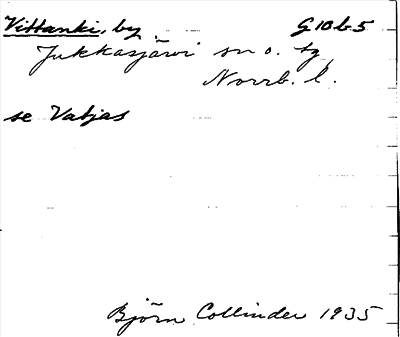 Vittanki, by G10b5
Jukkasjärvi sn o. tg
Norrb. l.
se Vatjas
Björn Collinder 1935